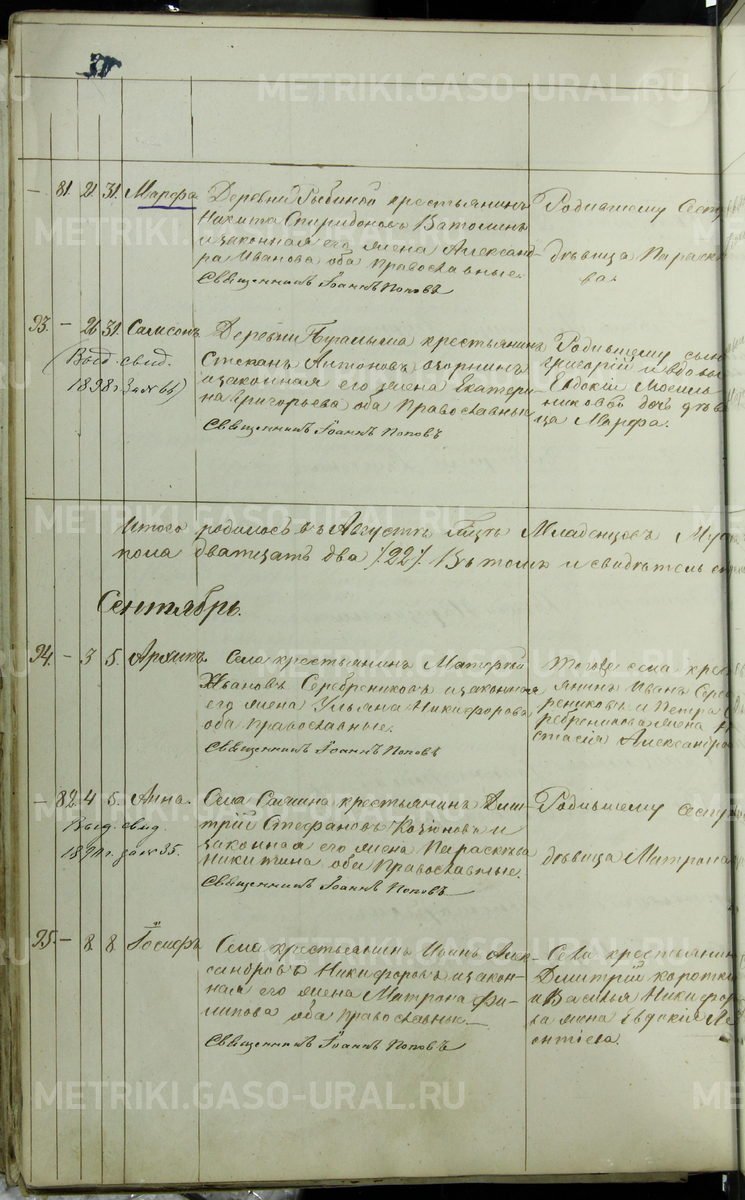 METRIKI.GASO-URAL.RU
— 81. 21. 31. Марѳа. Деревни крестьянинъ
Никита Спиридоновъ Ватолинъ
и законная его жена Александ-
ра Иванова оба православные.
Священникъ Іоаннъ Поповъ
Родившему сест
дѣвица Параске
ва.
93. — 26 31. Самсонъ. Деревни крестьянинъ
Степанъ Антоновъ
и законная его жена Екатери-
на Григорьева оба Православные
Священникъ Іоаннъ Поповъ
Выд. свид.
1898 г. за № 66)
Родившему сынъ
Григорій и вдовы
Евдокіи
дочь дѣви
ца Марѳа.
Итого родилось въ Августѣ мцѣ Младенцовъ Му
пола дватцать два /22/. Въ томъ и свидѣтель
Сентябрь.
94. — 3 5. Архипъ. Села крестьянинъ
Ивановъ Серебрениковъ и законная
его жена Ульяна Никифорова
оба православные.
Священникъ Іоаннъ Поповъ
Тогоже села крес
янинъ Иванъ Сере
брениковъ и Петра
ребреникова жена
стасія Александро
— 82. 4 5. Анна. Села крестьянинъ Дми-
трій Стефановъ и
законная его жена Параскева
Никитина оба Православные.
Священникъ Іоаннъ Поповъ
Выд. свид.
за № 35.
Родившему сест
дѣвица Матрона
95. — 8 8 Іосифъ. Села крестьянинъ Иванъ Алек-
сандровъ Никифоровъ и закон-
ная его жена Матрона Фи-
липова оба православные.
Священникъ Іоаннъ Поповъ
Села крестьянин
Дмитрій Коротки
и Василья Никифор
ва жена Евдокія Ле
онтіева.